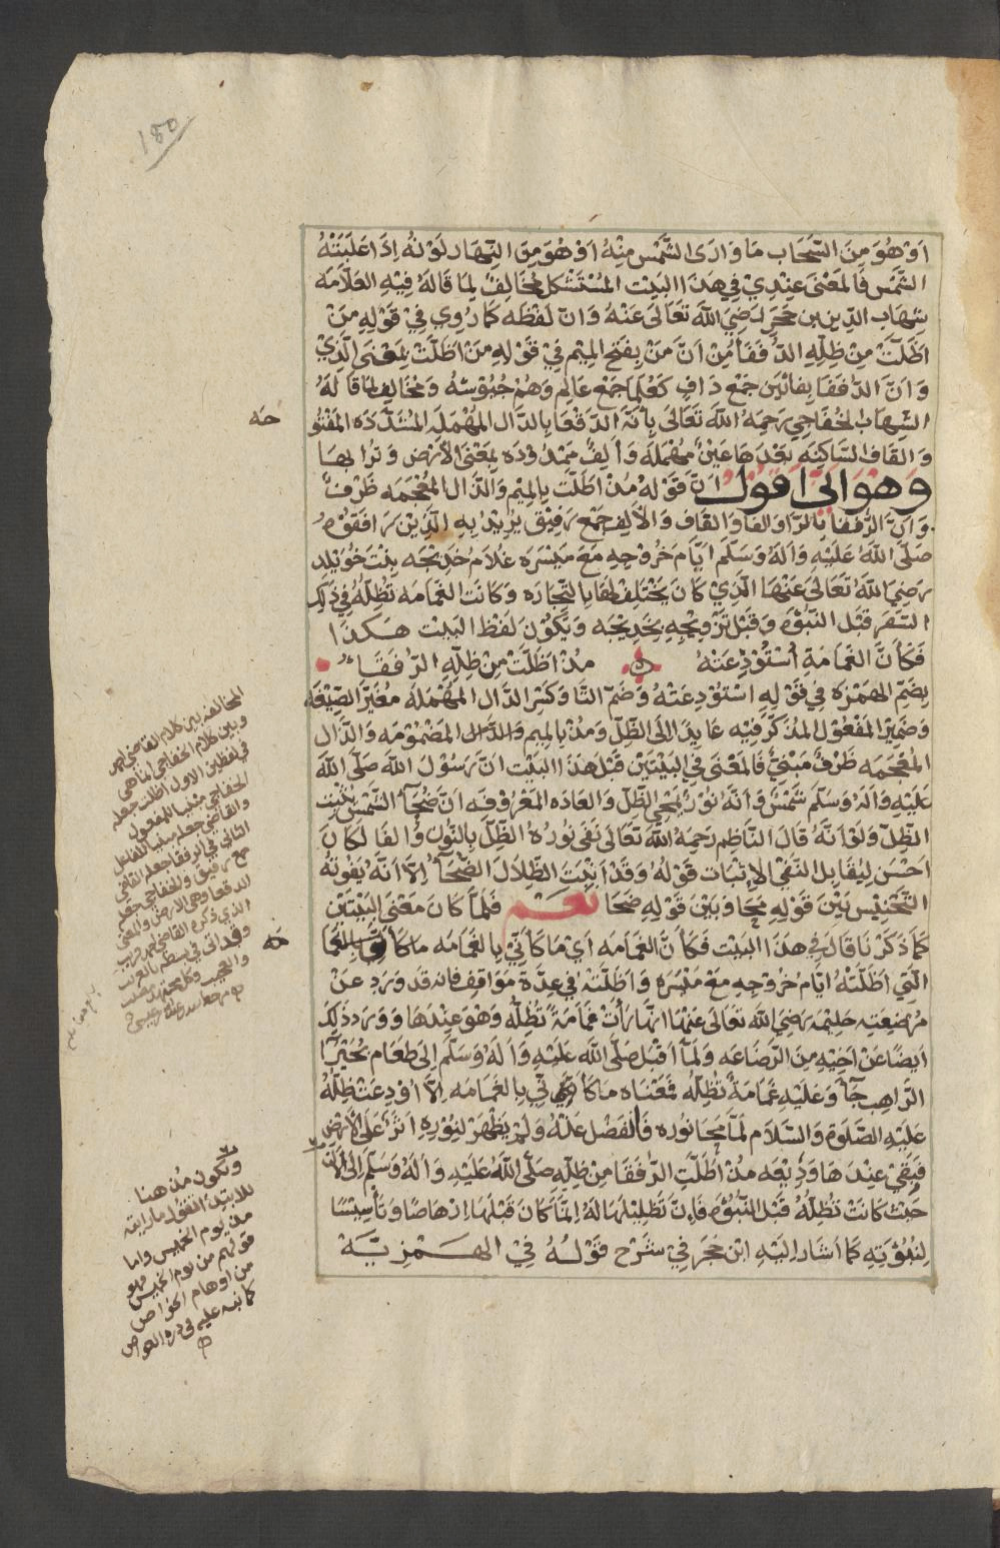 180
اَوْهُوَ مِنَ السَّحَاب مَا وَارَى الشَّمْسَ مِنْهُ اَوْهُوَ مِنَ النَّهَار لَوْنُهُ اِذَا غَلَبَتْهُ
الشَّمْسُ فَالمَعْنَى عِنْدِي فِي هَذَا البَيْت المُسْتَشْكل مُخَالِفٌ لِمَا قَالَهُ فِيْهِ العَلّامَه
شِهَاب الدِّين بن حَجَر رَضِيَ اللَّه تَعَالَى عَنْهُ وَانّ لَفظَه كَمَا رُوِي فِي قَوْلِهِ مَنْ
اَظَلَّتْ مِنْ ظِلِّهِ الدُّفَفَاُ مِنْ اَنَّ مَنْ بِفَتْح المِيْم فِيْ قَوْلِهِ مَنْ اَظَلَّتْ بِمَعْنَى الَّذِيْ
وَاَنَّ الدُّفَفَا بِفَائَيْن جَمْع دَافٍ كَعُلَمَا جَمْع عَالِم وَهُمْ جُيُوْشُهُ وَمُخَالِف لِمَا قَالَهُ
الشِّهَابُ الخَفَاجِي رَحِمَهُ اللَّه تَعَالَى بِاَنَّهَ الدَّقْعَا بِالدَّال المُهْمَلَه المُشَدَّدَه المَفْتُو
حَه
وَالقَاف السَّاكِنَه بَعْدَهَا عَيْنٌ مُهْمَلَه وَاَلِفٌ مَمْدُوْدَه بِمَعْنَى الاَرْض وَتُرابهَا
وَهُوَ اَنّي اَقُوْلُ اِنّ قَوْلهُ مُذْ اَظَلَّتْ بِالمِيْم وَالذَّال المُعْجَمَه ظَرْفٌ
وَاَنَّ الرُّفَقَا بِالرَّاوَالفَا وَالقَاف وَالاَلِف جَمْع رَفِيْق يُرِيْد بِهِ الَّذِيْنَ رَافَقُوْهُ
صَلَّى اللَّهُ عَلَيْهِ وَالَهُ وَسَلَّمَ ايَّامَ خُرُوْجِهِ مَعَ مَيْسَرَه غُلَام خَدِيْجَه بِنْتِ خُوَيْلِد
رَضِيَ اللَّهُ تَعَالَى عَنْهَا الَّذِيْ كَانَ يَخْتَلِفُ لَهَا بِالتِّجَارَه وَكَانَت الغَمَامَه تُظِلُّهُ فِيْ ذَلِكَ
السَّفَر قَبْلَ النُّبُوَّه وَقَبْلَ تَزْوِيْجِهِ بِخَدِيْجَه وَيَكُوْن لَفْظُ البَيْت هَكَذَا
فَكَاَنَّ الغَمَامَةِ اُسْتُوْدِعَتْهُ مُذْ اَظَلَّتْ مِنْ ظِلِّهِ الرُّفَقَاءُ
بِضَمّ الهَمْزَه فِيْ قَوْلِهِ اسْتُوْدِعَتْهُ وَضَمّ التَّا وَكَسْر الدَّال المُهْمَلَهُ مُغَيَّرَ الصِّيْغَه
وَضَمِيْرُ المَفْعُوْل المُذَكَّر فِيْه عَايِدٌ الى الظِّلّ وَمُذْ بِالمِيم المَضْمُوْمَه وَالذَّال
المُعْجَمَه ظَرْفٌ مَبْنِيٌّ فَالمَعْنَى فِي البَيْتَيْن قَبْلَ هَذَا البَيْت اَنّ رَسُوْلَ اللَّه صَلّى اللَّه
عَلَيْهِ وَالَهُ وَسَلَّم شَمْسٌ وَاَنَّهُ نُوْرٌ يَمْحي الظِّلّ وَالعَادَه المَعْرُوْفَه اَنّ ضُحَا الشَّمْسِ يُثْبِت
الظِّلّ وَلَوْ اَنَّهُ قَالَ النَّاظِم رَحِمَهُ اللَّه تَعَالَى نَفَى نُورُهُ الظِّلّ بِالنُّون وَالفَا لَكَانَ
اَحْسَن لِيُقَابِل النَّفْيُ الاِثْبَاتَ قَوْلهُ وَقَدْ اَثْبَتَ الظِّلَالَ الضَّحَاءُ اِلّا اَنَّهُ يَفُوْتُهُ
التَّجْنِيْس بَيْنَ قَوْلِهِ مَحَا وَبَيْنَ قَوْلِهِ ضَحَا نَعَمْ فَلَمَّا كَانَ مَعْنَى البَيْتَيْن
كَمَا ذَكَرْنَا قَالَ فِيْ هَذَا البَيْت فَكَاَنَّ الغَمَامَه اَيْ مَا كَاَنِّيْ بِالغَمَامَه بِالغَمَا
مَه
الَّتِي اَظَلَّتْهُ ايَّام خُرُوْجِهِ مَعْ مَيْسَرَه وَاَظَلَّتْهُ فِي عِدَّة مَوَاقِف فَانهُ قَد وَرَد عَنْ
مُرْضِعَتِه حَلِيْمَه رَضِيَ اللَّه تَعَالَى عَنْهَا انّهَا رَاَتْ غَمَامَةً تُظِلُّهُ وَهُوَ عِنْدَهَا وَوَرَد ذَلِكَ
اَيْضًا عَنْ اَخِيْهِ مِنَ الرَّضَاعَه وَلَمّا اَقْبَل صَلّى اللَّه عَلَيْهِ وَالَهُ وَسَلَّم اِلَى طَعَام بُحَيْرَا
الرَّاهِب جَاَ وَعَلَيْهِ غَمَامَةٌ تُظِلّهُ فَمَعْنَاه مَا كَاَنِّيْ بِالغَمَامَه اِلّا اُوْدِعَتْ ظِلّهُ
عَلَيْهِ الصَّلَوة وَالسَّلَام لَمّا مَحَا نُوْره فَانْفَصَل عَنْهُ وَلَمْ يَظْهَرْ لِنُوْرِهِ اَثَرٌ عَلَى الاَرْضِ
فَبَقِيْ عِنْدَهَا وَدِيْعَه مُذْ اَظَلَّتِ الرُّفَقَا مِنْ ظِلِّهِ صَلَّى اللَّهُ عَلَيْهِ وَالَهُ وَسَلَّم اِلَى الاَنَ
حَيْثُ كَانَتْ تُظِلُّهُ قَبْلَ النُّبُوَّه فَاِنّ تَظْلِيْلَهَا لَهُ اِنَّمَا كَانَ قَبْلَهَا اِرْهَاصًا وَتَأسِيْسًا
لِنُبُوَّتِهِ كَمَا اَشَارَ اِلَيْهِ ابْن حَجَر فِيْ شَرْح قَوْلُهُ فِيْ الهَمْزِيَّة
المخالفه بين كلام القاضي
وبين كلام الخفاجي انما هي
في لفظين الاول اظلت جعله
الخفاجي مبنيا للمفعول
والقاضي جعله مبنيا للفاعل
الثاني في الرفقا جعله القاضي
جمع رفيق والخفاجي جعله
الدقعا وهي الارض والمعنى
الذي ذكره القاضي
وتكون مذ هنا
للابتدا
مذ يوم الخميس واما
قولهم من يوم الخميس فهو
من اوهام الخواص
كما نبه عليه في درة الغواص